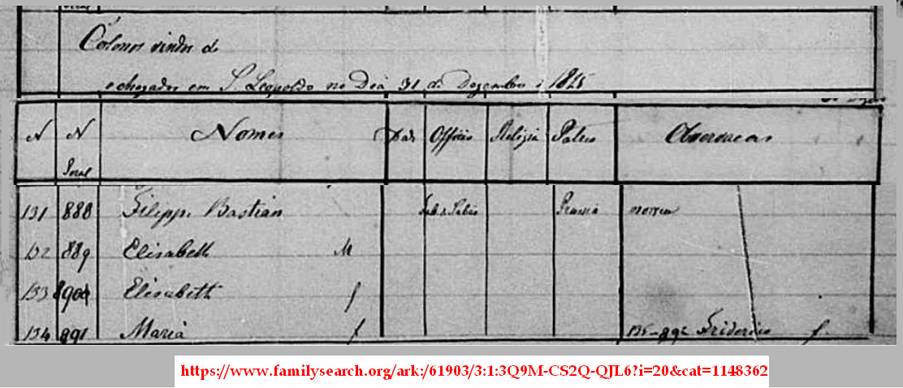 Colonos vindos de
e chegados em S. Leopoldo no Dia 31 de Dezembro 1825
N N Nomes Officio Religia Patria
Geral
131 888 Filippe Bastian Prussia morreu
132 889 Elisabeth M
133 890 Elisabeth f
134 891 Maria f 135-892 f
https://www.familysearch.org/ark:/61903/3:1:3Q9M-CS2Q-QJL6?i=20&cat=1148362